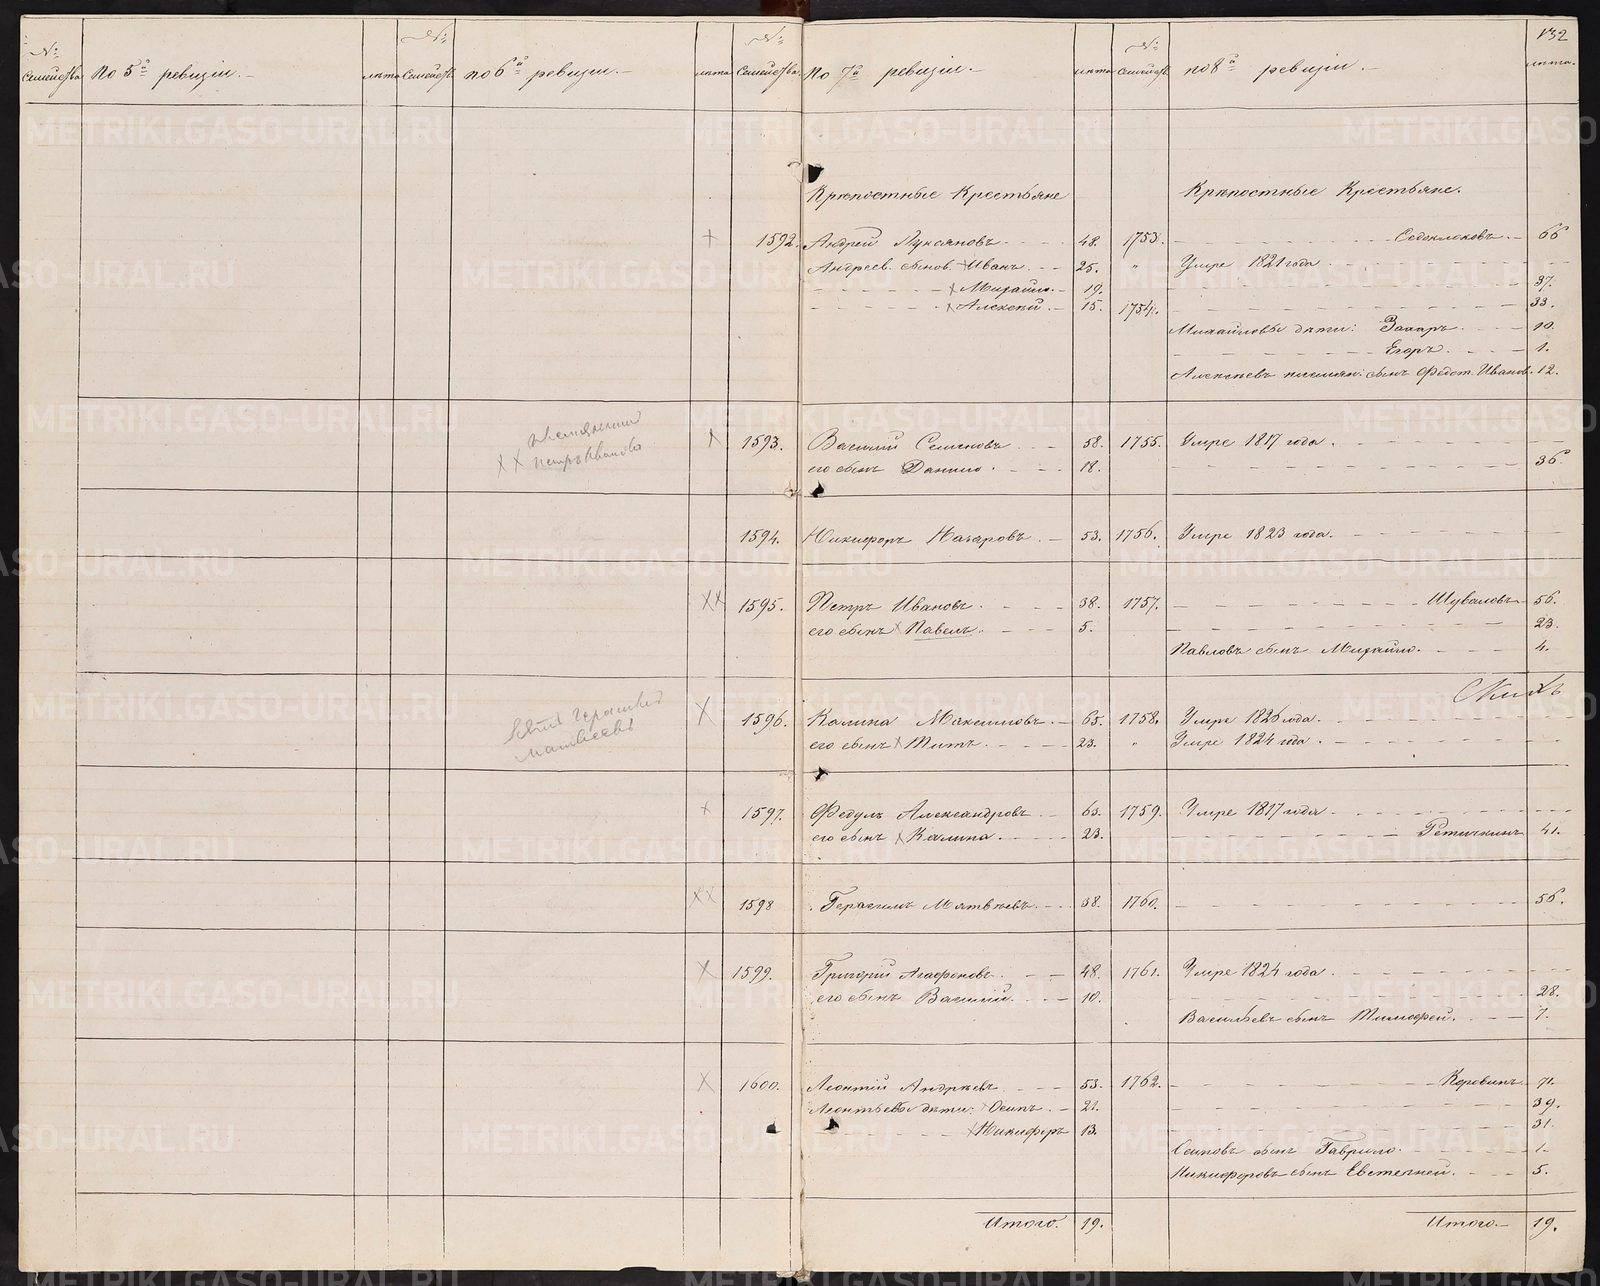 132
№: Семейства По 5й ревизіи.— лѣта №: Семейств. по 6й ревизіи.— лѣта №: Семейства. По 7й ревизіи.— лѣта №: Семейств. по 8й ревизіи.— лѣта.
Крѣпостные Крестьяне Крѣпостные Крестьяне.
+ 1592. Андрей Лукояновъ 48. 1753. 66
Андреев. сынов. Иванъ. 25. " Умре 1821 года
х Михайло. 19. 37.
х Алексѣй. 15. 1754. 33.
Михайловы дѣти: Захаръ. 10.
Егоръ. 1.
Алексѣевъ племян: сынъ Федот. Иванов. 12.
х 1593. Василий Семеновъ 58. 1755. Умре 1817 года.
х х Петръ Ивановъ
его сынъ Данило. 18. 36.
1594. Никифоръ Назаровъ. 53. 1756. Умре 1823 года.
хх 1595. Петръ Ивановъ. 38. 1757. Шуваловъ 56.
его сынъ х Павелъ. 5. 23.
Павловъ сынъ Михайло. 4.
Герасимъ
Матвеевъ
х 1596. Калина Максимовъ. 65. 1758. Умре 1826 года.
его сынъ х Титъ. 23. " Умре 1824 года.
х 1597. Федулъ Александровъ 63. 1759. Умре 1817 года
его сынъ х Калина. 23. 41.
хх 1598 Герасимъ Матвѣевъ. 38. 1760. 56.
х 1599. Григорій Агафоновъ. 48. 1761. Умре 1824 года.
его сынъ Василий. 10. 28.
Васильевъ сынъ Тимофей. 7.
х 1600. Леонтій Андрѣевъ 53. 1762. Коровинъ 71.
Леонтьевы дѣти: Осипъ. 21. 39.
х Никифоръ 13. 31.
Осиповъ сынъ Гаврило. 1.
Никифоровъ сынъ Евстегней. 5.
Итого. 19. Итого. 19.
METRIKI.GASO-URAL.RU